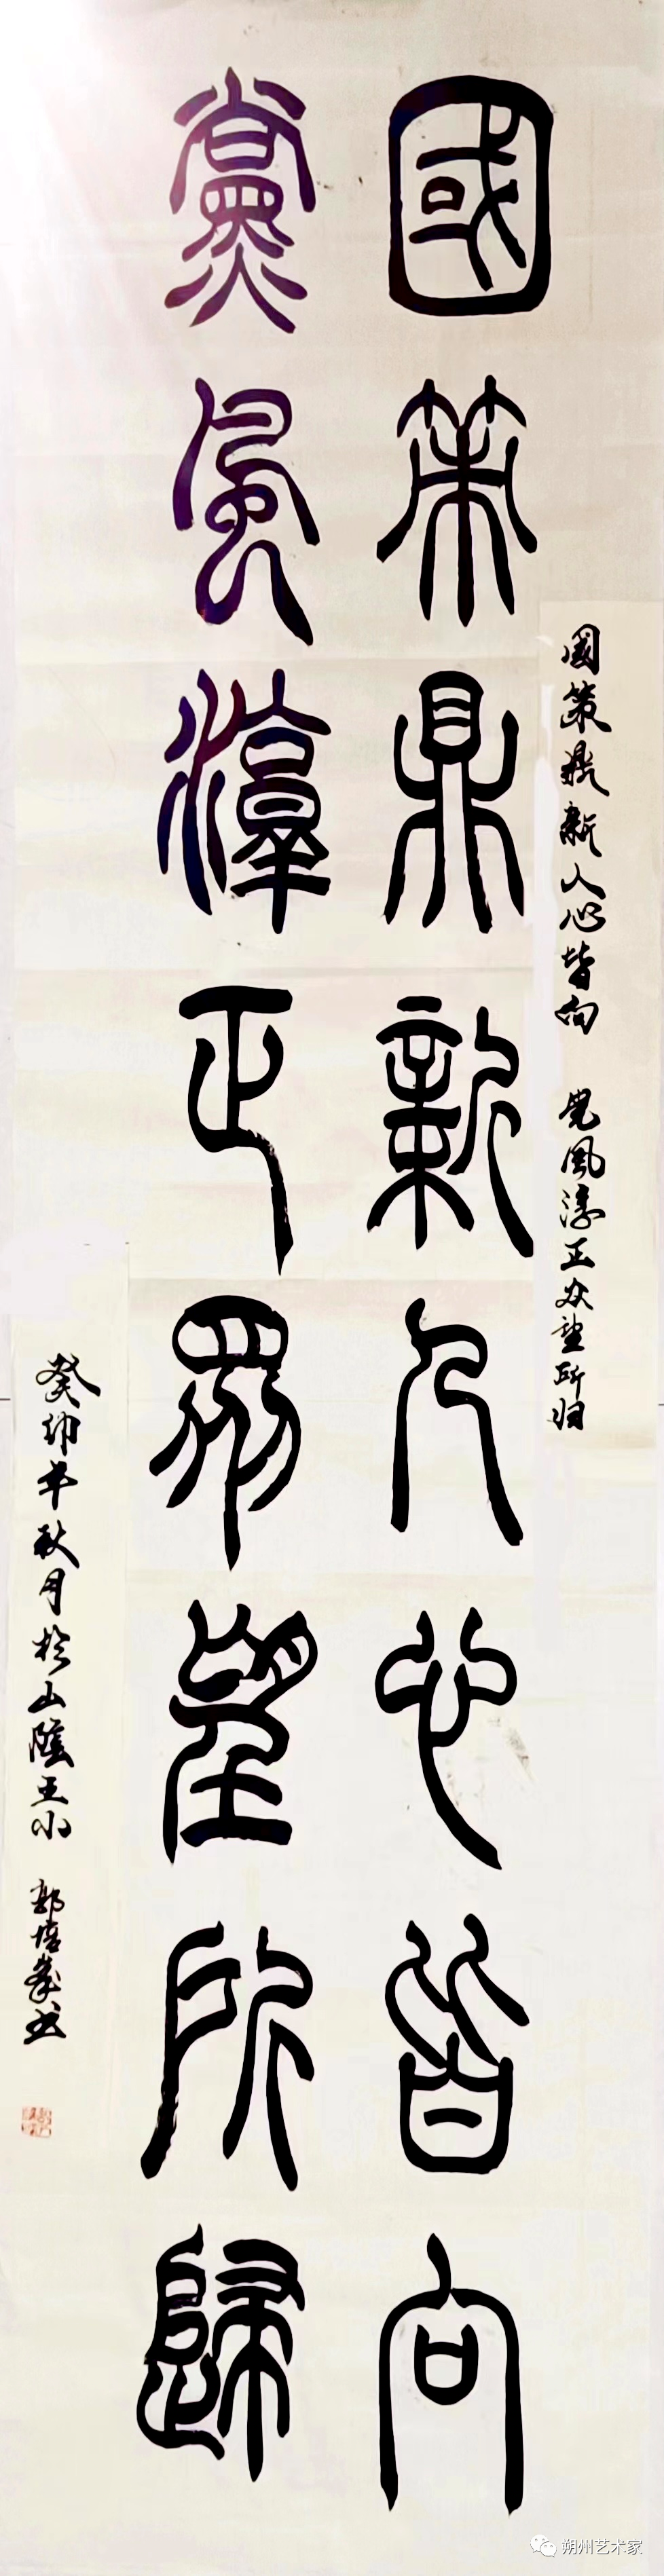 國策鼎新人心皆向 党風淳正众望所归
國策鼎新人心皆向
黨風淳正眾望所歸
癸卯年秋月於山陰王小 郭培峯书
朔州艺术家